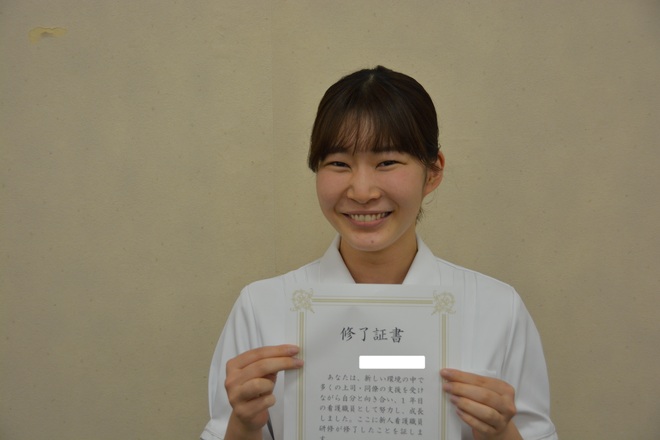 修了証書
あなたは、新しい環境の中で
多くの上司・同僚の支援を受け
ながら自分と向き合い、1年目
の看護職員として努力し、成長
しました。ここに新人看護職員
研修が修了したことを証しま
す